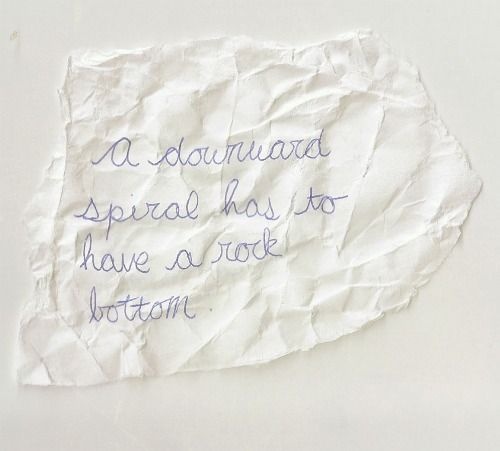 A downward
spiral has to
have a rock
bottom.